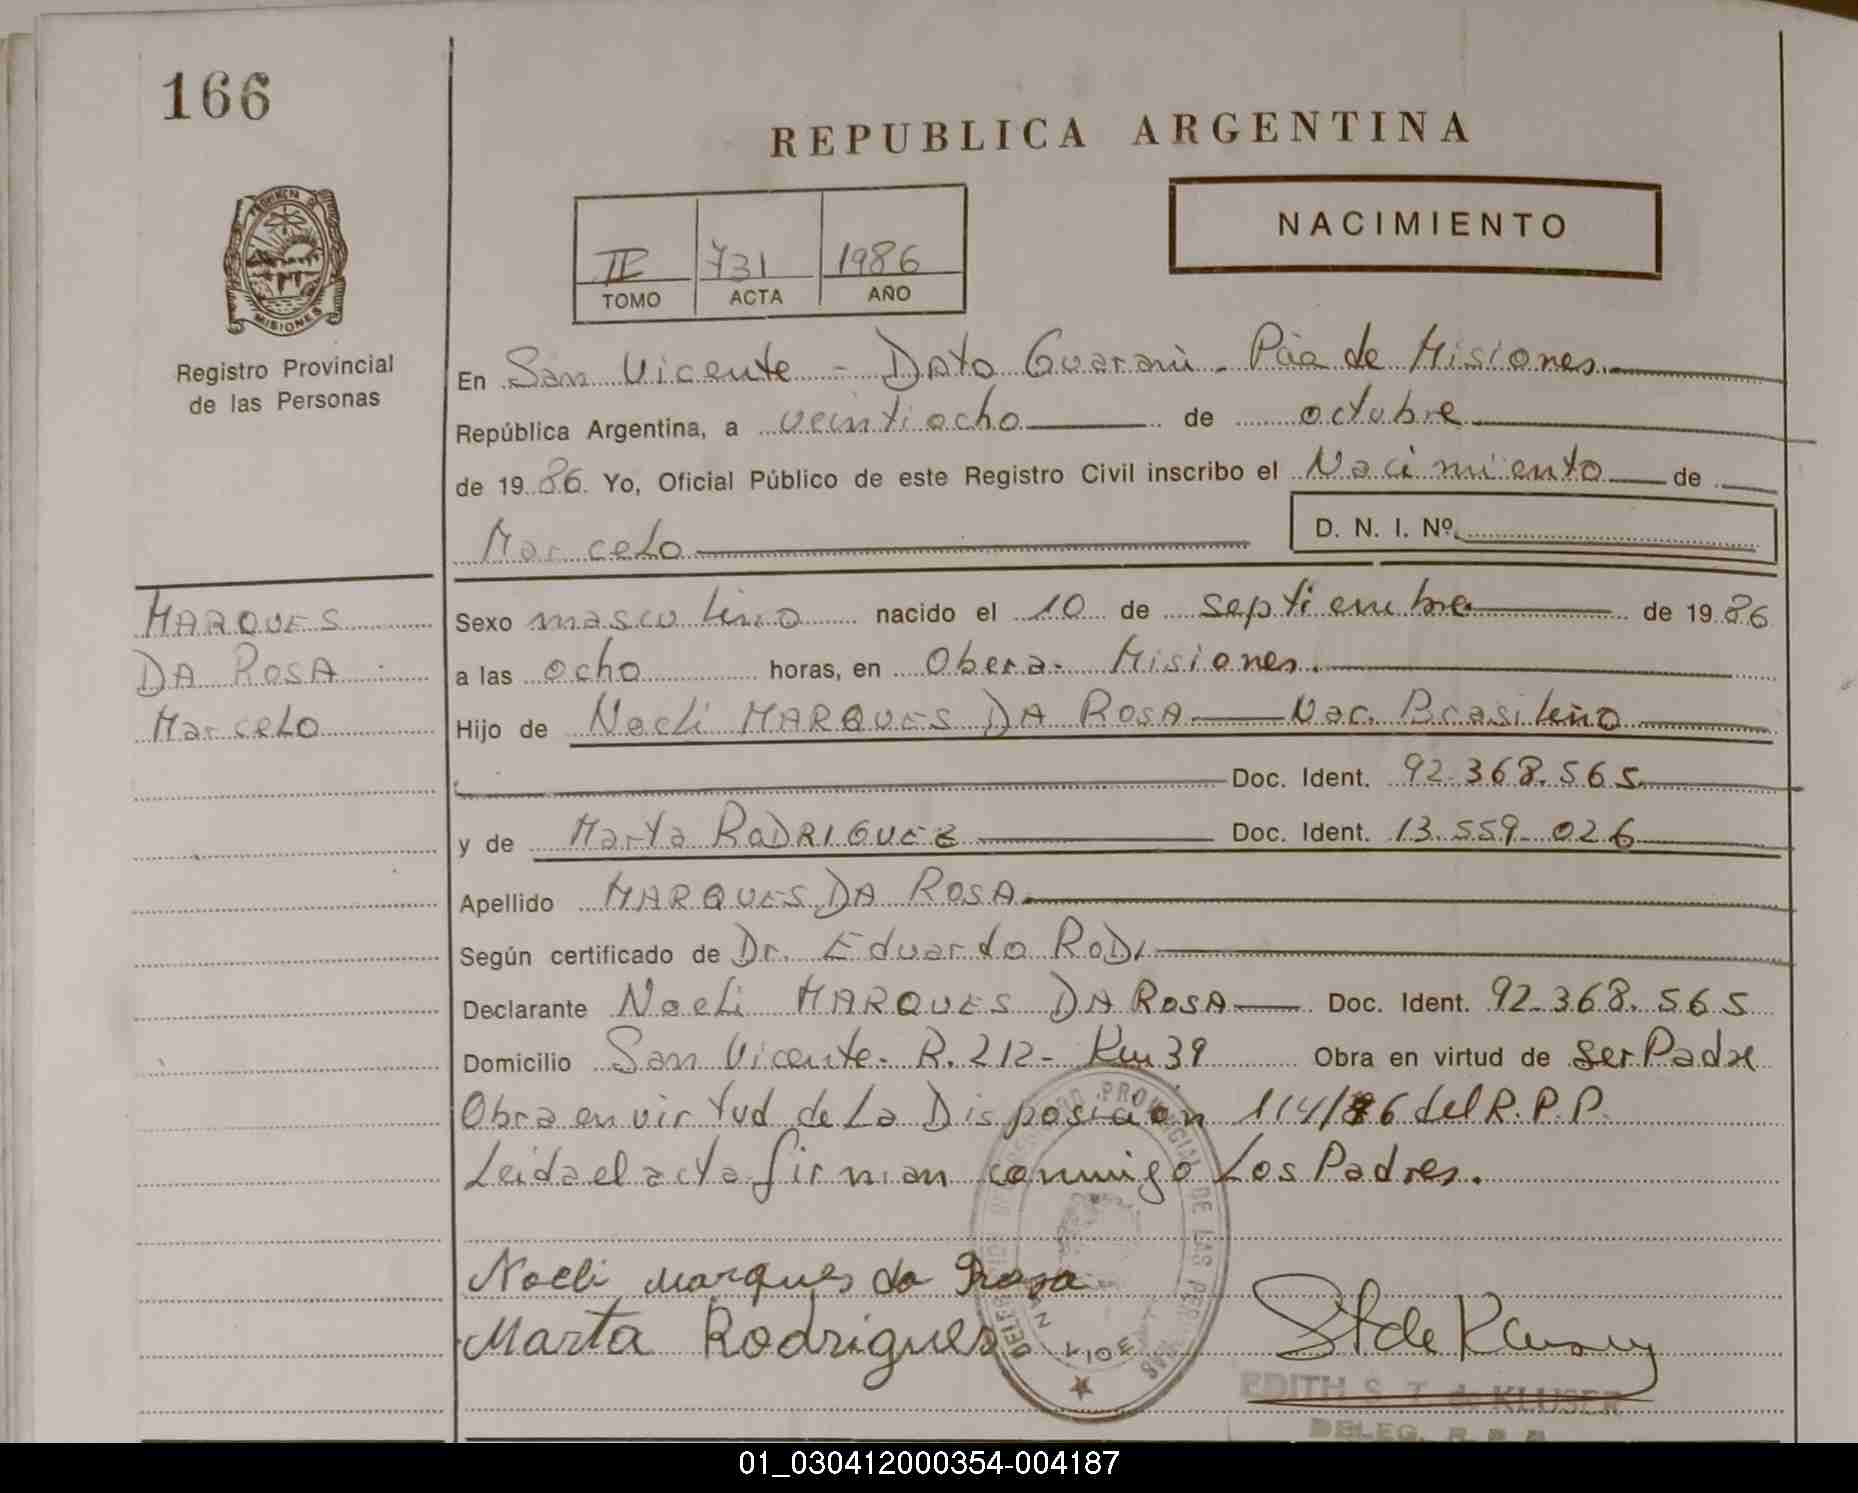 166
REPUBLICA ARGENTINA
NACIMIENTO
II 731 1986
TOMO ACTA AÑO
PROVINCIA D
MISIONES
Registro Provincial
de las Personas
En San Vicente - Dpto Guaraní - Pcia de Misiones.
República Argentina, a veintiocho de octubre
de 1986 Yo, Oficial Público de este Registro Civil inscribo el Nacimiento de
Marcelo D. N. I. Nº
MARQUES
DA ROSA
Marcelo
Sexo masculino nacido el 10 de septiembre de 1986
a las ocho horas, en Obera - Misiones.
Hijo de Noeli MARQUES DA ROSA Nac. Brasileño
Doc. Ident. 92.368.565
y de Marta RODRIGUEZ Doc. Ident. 13.559.026
Apellido MARQUES DA ROSA
Según certificado de Dr. Eduardo RODI
Declarante Noeli MARQUES DA ROSA Doc. Ident. 92.368.565
Domicilio San Vicente - R. 212 - Km 39 Obra en virtud de ser Padre
Obra en virtud de La Disposición 114/86 del R.P.P.
Leida el acta firman conmigo Los Padres.
Noeli Marques da Rosa
Marta Rodrigues
PROVINCIAL DE LAS PERSONAS
EDITH S. T. de KLUSER
DELEG. R. P. P.
01_030412000354-004187